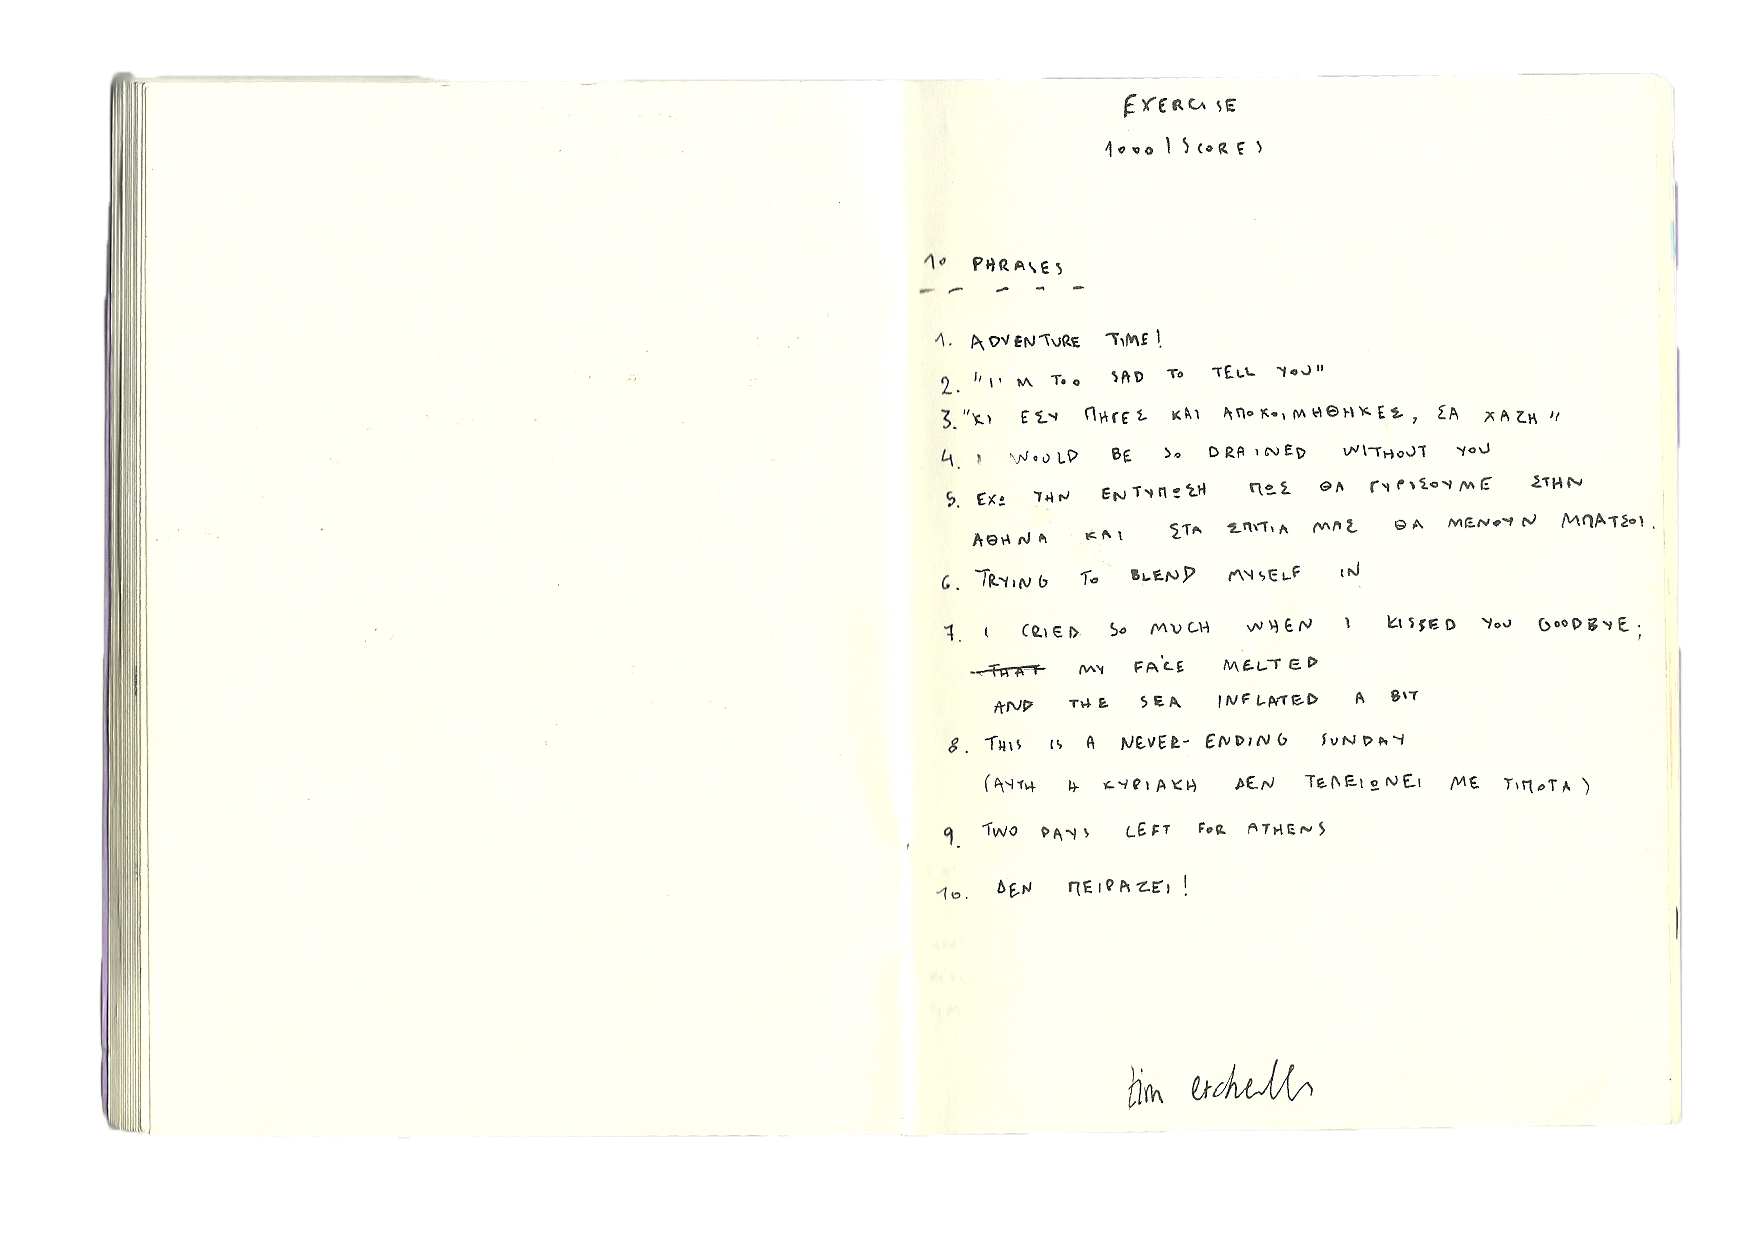 EXERCISE
1000 | SCORES
10 PHRASES
1. ADVENTURE TIME!
2. "I'M TOO SAD TO TELL YOU"
3. "ΚΙ ΕΣΥ ΠΗΓΕΣ ΚΑΙ ΑΠΟΚΟΙΜΗΘΗΚΕΣ, ΣΑ ΧΑΖΗ"
4. I WOULD BE SO DRAINED WITHOUT YOU
5. ΕΧΩ ΤΗΝ ΕΝΤΥΠΩΣΗ ΠΩΣ ΘΑ ΓΥΡΙΣΟΥΜΕ ΣΤΗΝ
ΑΘΗΝΑ ΚΑΙ ΣΤΑ ΣΠΙΤΙΑ ΜΑΣ ΘΑ ΜΕΝΟΥΝ ΜΠΑΤΣΟΙ.
6. TRYING TO BLEND MYSELF IN
7. I CRIED SO MUCH WHEN I KISSED YOU GOODBYE;
THAT MY FACE MELTED
AND THE SEA INFLATED A BIT
8. THIS IS A NEVER-ENDING SUNDAY
(ΑΥΤΗ Η ΚΥΡΙΑΚΗ ΔΕΝ ΤΕΛΕΙΩΝΕΙ ΜΕ ΤΙΠΟΤΑ)
9. TWO DAYS LEFT FOR ATHENS
10. ΔΕΝ ΠΕΙΡΑΖΕΙ!
tim etchells